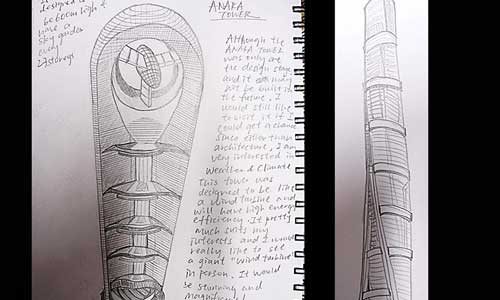 designed to
be 600m high &
have a
sky garden
every
27 storeys
ANARA
TOWER
Although the
ANARA TOWER
was only at
the design stage
and it may
not be built in
the future. I
would still like
to visit it if I
could get a chance
since other than
architecture, I am
very interested in
Weather & Climate
This tower was
designed to be like
a wind turbine and
will have high energy
efficiency. It pretty
much suits my
interests and I would
really like to see
a giant "wind turbine"
in person. It would
be stunning and
magnificent!